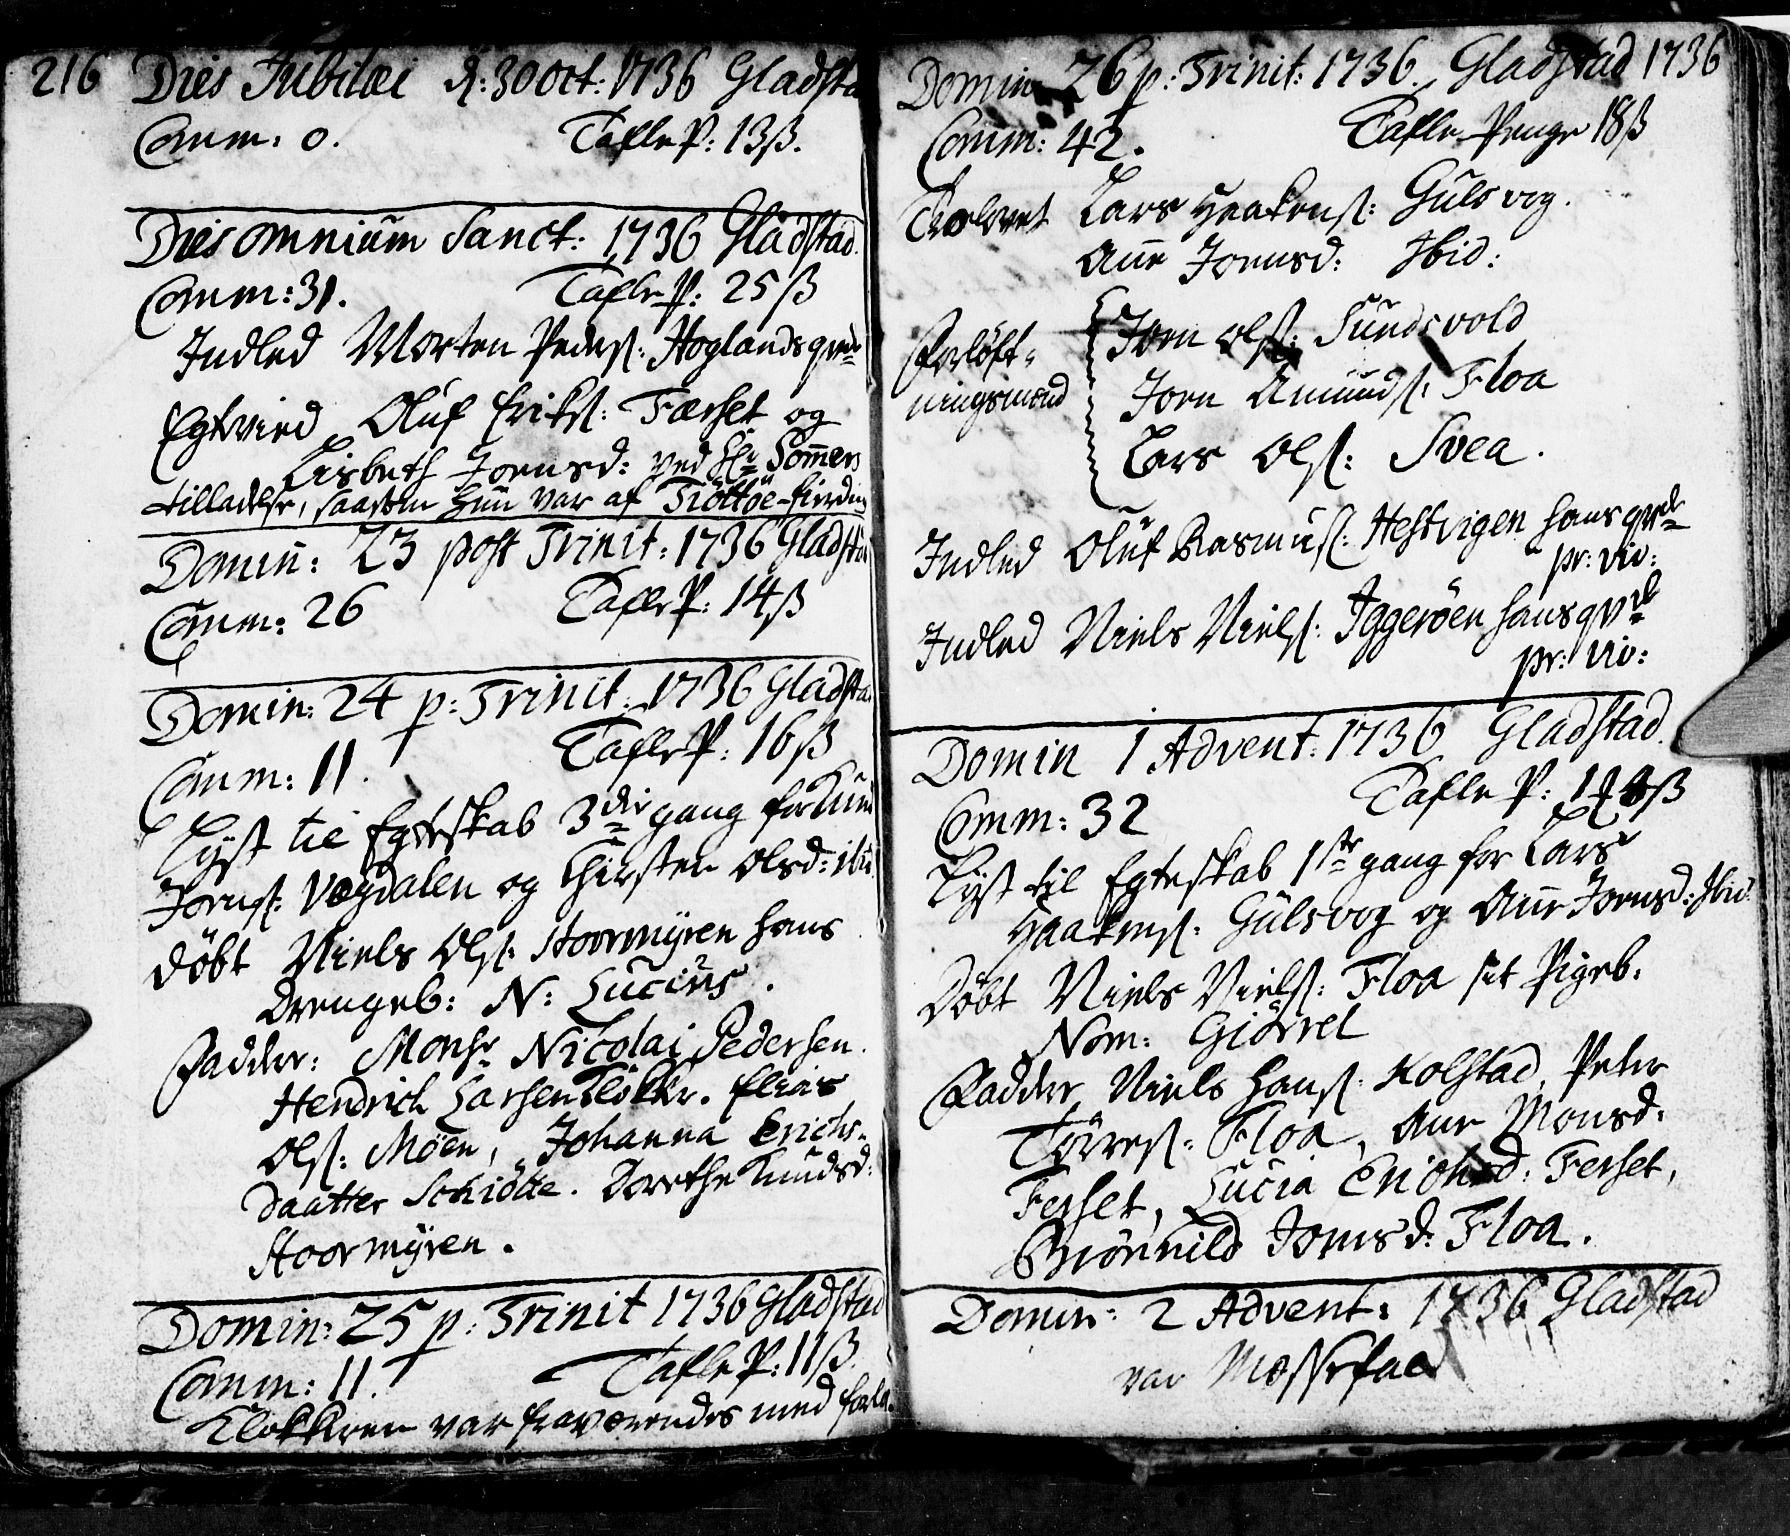 216 Dies Jubilæi d: 30 oct: 1736 Gladsta
Comm: 0. Tafle P: 13ß.
Dies omnium Sanct: 1736 Gladstad.
Comm: 31. Tafle P: 25ß
Indled Morten Peders: Hoglands qvde
Egtvied Oluf Eriks: Færset og
Lisbeth Joensd: ved Hr Sommers
tilladelse, saasom hun var af Tiøttøe-fierding
Domin: 23 post Trinit: 1736 Gladsta
Comm: 26 Tafle P: 14ß
Domin: 24 p: Trinit: 1736 Gladsta
Comm: 11. Tafle P: 16ß
Lyst til Egteskab 3die gang for Knud
Joens: Vægdalen og Chirsten Olsd: ibid
Døbt Niels Ols: Stoormyren hans
Drengeb: N: Lucius.
Fadder: Monsr Nicolai Pedersen.
Hendrich Larsen Klokkr. Elias
Ols: Moen, Johanna Erichs-
daatter Schiøtte. Dorethe Knudsd:
Stoormyren.
Domin: 25 p: Trinit 1736 Gladstad
Comm: 11. Tafle P: 11ß.
Klokkeren var fraværendes med
Domin 26 p: Trinit: 1736. Gladstad 1736
Comm: 42. Tafle Penge 18ß
Trolovet Lars Haakens: Gulsvog.
Ane Joensd: Ibid:
Forløft-
ningsmænd
Joen Ols: Sundsvold
Joen Amunds: Floa
Lars Ols: Svea.
Indled Oluf Rasmus: Hestvigen hans qvde
pr: vic:
Indled Niels Niels: Iggerøen hans qvde
pr: vic:
Domin 1 Advent: 1736 Gladstad.
Comm: 32 Tafle P: ß
Lyst til Egteskab 1ste gang for Lars
Haakens: Gulsvog og Ane Joensd: Ibid:
Døbt Niels Niels: Floa sit Pigeb:
Nom: Giørrel
Fadder Niels Hans: Kolstad, Peter
Tørres: Floa, Ane Monsd:
Ferset, Lucia Erichsd: Ferset,
Brønnild Jonisd: Floa.
Domin: 2 Advent: 1736 Gladstad
var Messefald